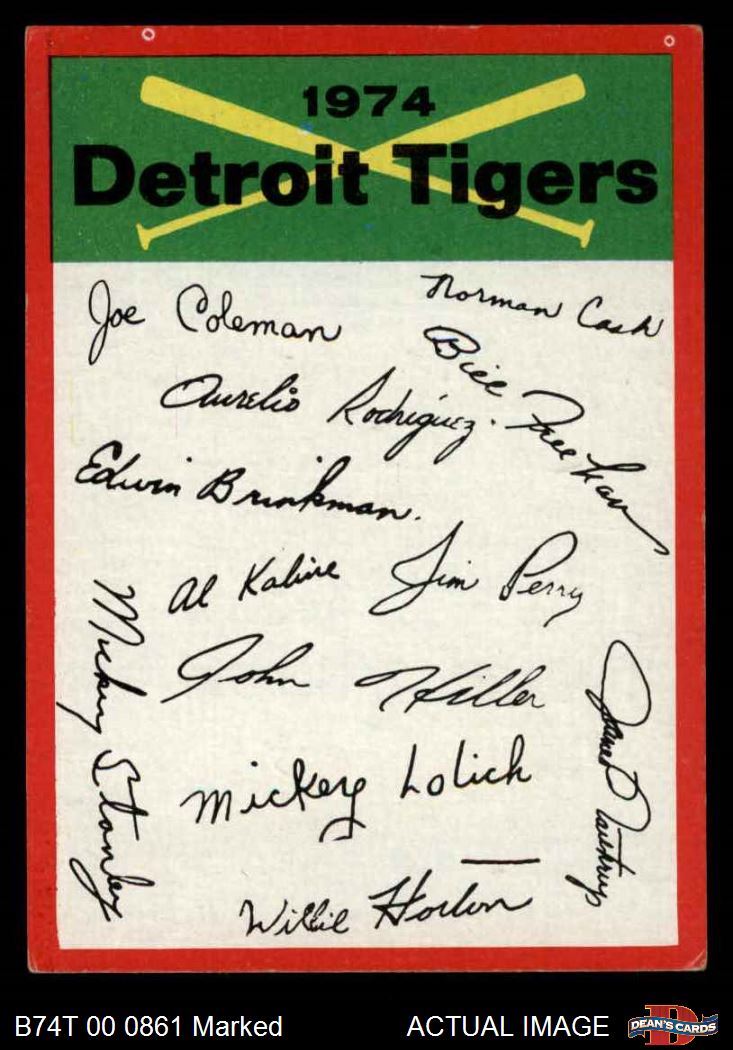 1974
Detroit Tigers
Joe Coleman
Norman Cash
Bill Freehan
Aurelio Rodriguez.
Edwin Brinkman.
Al Kaline
Jim Perry
Mickey Stanley
John Hiller
James Northrup
Mickey Lolich
Willie Horton
B74T 00 0861 Marked
ACTUAL IMAGE
DEAN'S CARDS